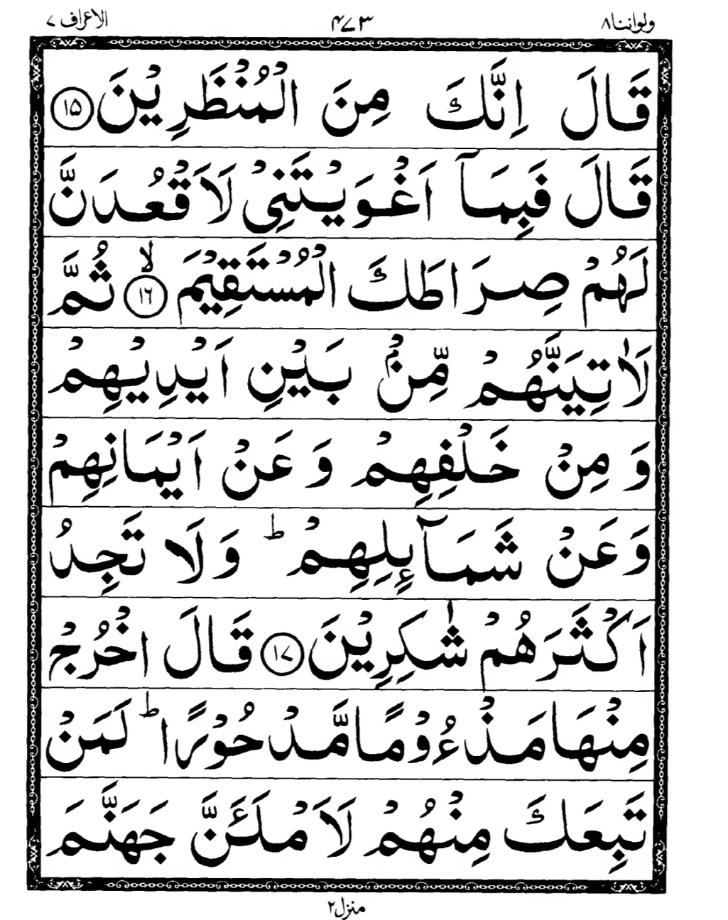 ولواننا٨ ۴۷۳ الاعراف ۷
قَالَ اِنَّكَ مِنَ الْمُنْظَرِيْنَ ۝۱۵
قَالَ فَبِمَاۤ اَغْوَيْتَنِيْ لَاَقْعُدَنَّ
لَهُمْ صِرَاطَكَ الْمُسْتَقِيْمَ ۝۱۶ۙ ثُمَّ
لَاٰتِيَنَّهُمْ مِّنْۢ بَيْنِ اَيْدِيْهِمْ
وَ مِنْ خَلْفِهِمْ وَ عَنْ اَيْمَانِهِمْ
وَ عَنْ شَمَآىِٕلِهِمْ ؕ وَلَا تَجِدُ
اَكْثَرَهُمْ شٰكِرِيْنَ ۝۱۷ قَالَ اخْرُجْ
مِنْهَا مَذْءُوْمًا مَّدْحُوْرًا ؕ لَمَنْ
تَبِعَكَ مِنْهُمْ لَاَمْلَـَٔنَّ جَهَنَّمَ
منزل۲